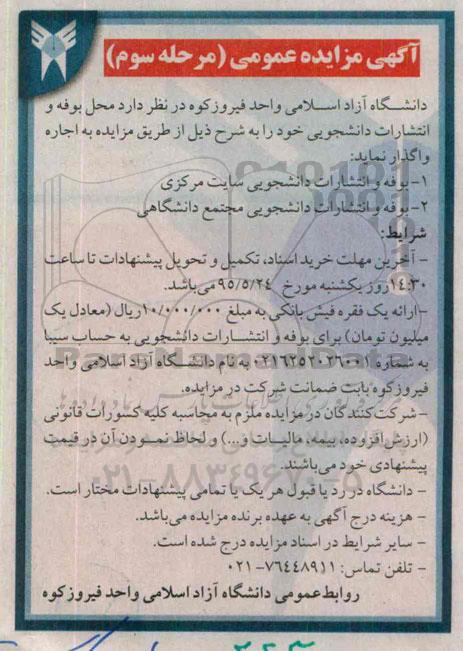 آگهی مزایده عمومی (مرحله سوم)
دانشگاه آزاد اسلامی واحد فیروزکوه در نظر دارد محل بوفه و
انتشارات دانشجویی خود را به شرح ذیل از طریق مزایده به اجاره
واگذار نماید:
۱- بوفه و انتشارات دانشجویی سایت مرکزی
۲- بوفه و انتشارات دانشجویی مجتمع دانشگاهی
شرایط:
- آخرین مهلت خرید اسناد، تکمیل و تحویل پیشنهادات تا ساعت
۱۴:۳۰ روز یکشنبه مورخ ۹۵/۵/۲۴ می‌باشد.
- ارائه یک فقره فیش بانکی به مبلغ ۱۰/۰۰۰/۰۰۰ ریال (معادل یک
میلیون تومان) برای بوفه و انتشارات دانشجویی به حساب سیبا
به شماره به نام دانشگاه آزاد اسلامی واحد
فیروزکوه بابت ضمانت شرکت در مزایده.
- شرکت‌کنندگان در مزایده ملزم به محاسبه کلیه کسورات قانونی
(ارزش افزوده، بیمه، مالیات و...) و لحاظ نمودن آن در قیمت
پیشنهادی خود می‌باشند.
- دانشگاه در رد یا قبول هر یک یا تمامی پیشنهادات مختار است.
- هزینه درج آگهی به عهده برنده مزایده می‌باشد.
- سایر شرایط در اسناد مزایده درج شده است.
- تلفن تماس: ۷۶۴۴۸۹۱۱-۰۲۱
روابط عمومی دانشگاه آزاد اسلامی واحد فیروزکوه
ParsNamadData
۰۲۱-۸۸۳۴۹۶۷۰-۵